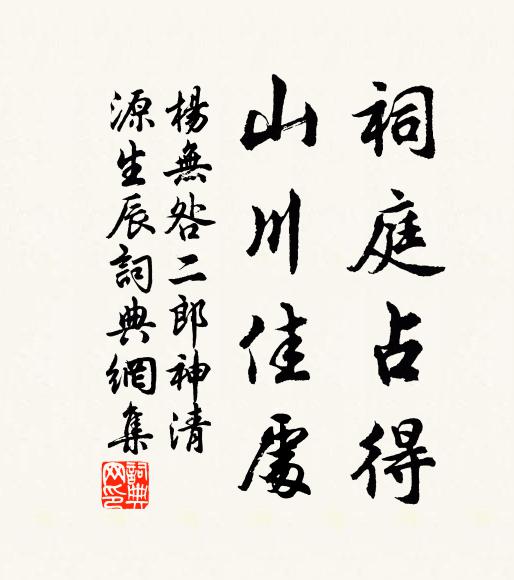 祠庭占得
山川佳處
楊無咎二郎神清
源生辰詞典網集
詞典網印